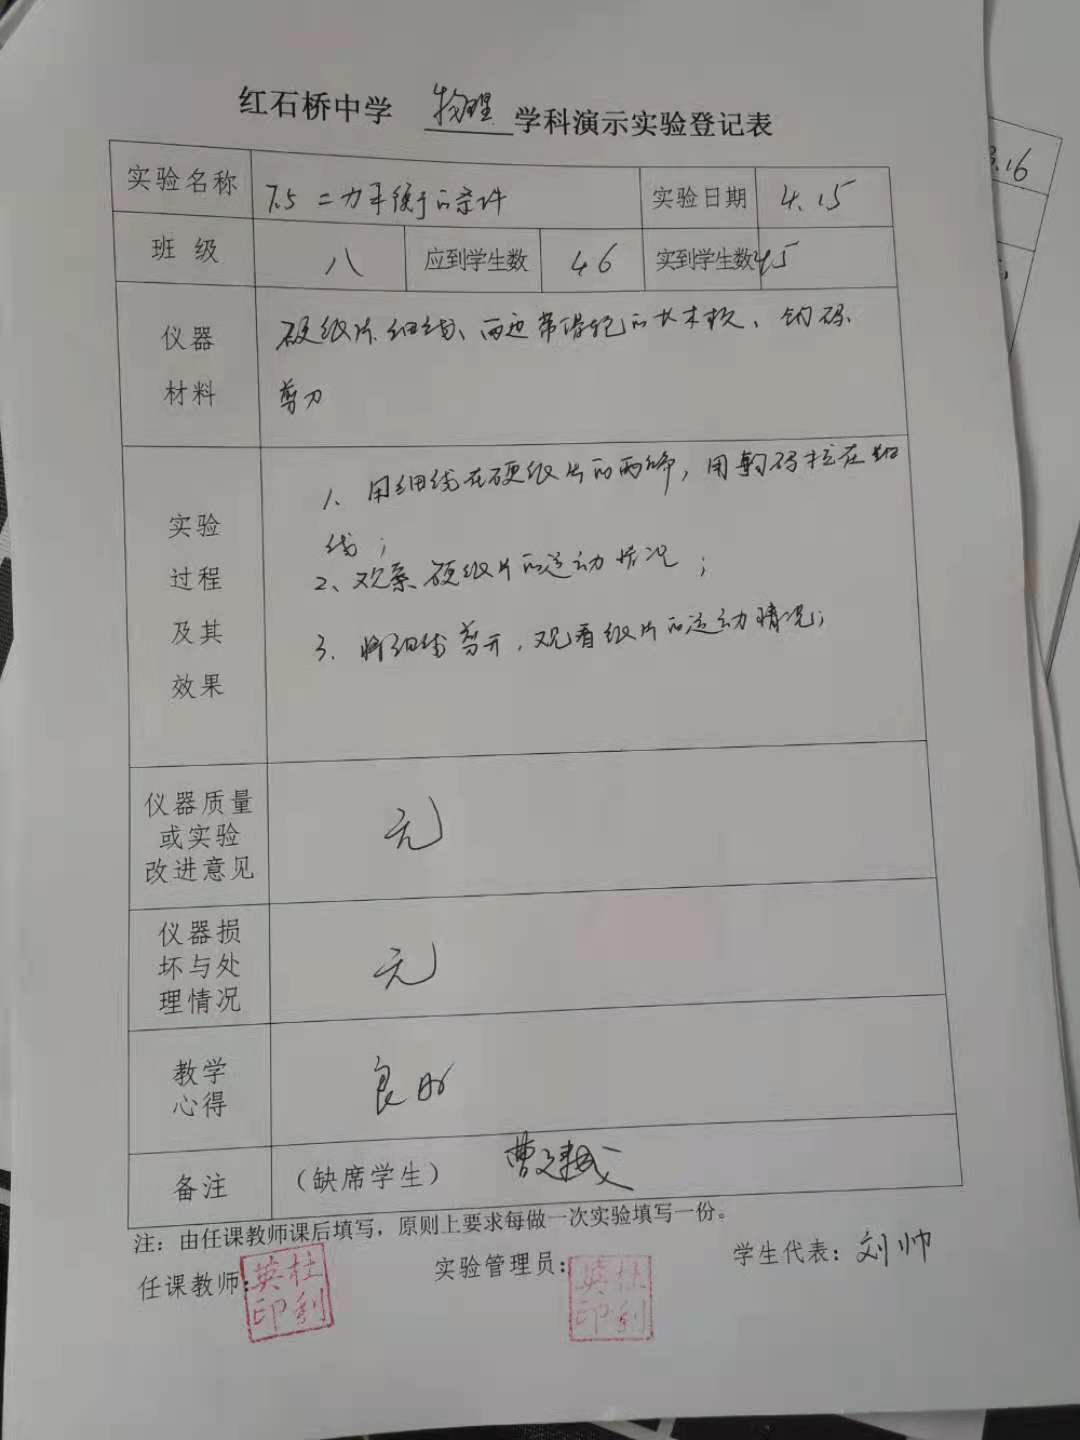 红石桥中学 物理 学科演示实验登记表
实验名称 7.5 二力平衡的条件 实验日期 4.15
班 级 八 应到学生数 46 实到学生数 45
仪器 硬纸片、细线、两边带滑轮的长木板、钩码、
材料 剪刀
1、用细线在硬纸片的两端,用钩码挂在细
线;
实验
过程
及其
效果
2、观察硬纸片的运动情况;
3、将细线剪开,观看纸片的运动情况;
仪器质量
或实验
改进意见
无
仪器损
坏与处
理情况
无
教学
心得
良好
备注 (缺席学生) 曹
注:由任课教师课后填写,原则上要求每做一次实验填写一份。
任课教师: 杜利英印 实验管理员: 杜利英印 学生代表:刘帅
.16